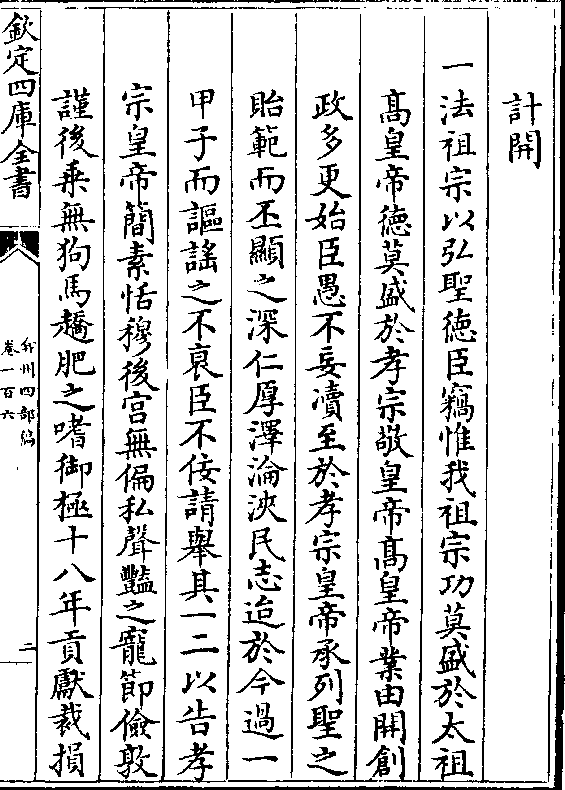 計開
一法祖宗以弘聖徳臣竊惟我祖宗功莫盛於太祖
髙皇帝徳莫盛於孝宗敬皇帝髙皇帝業由開創
政多更始臣愚不妄瀆至於孝宗皇帝承列聖之
貽範而丕顯之深仁厚澤淪浹民志迨於今過一
甲子而謳謡之不衰臣不佞請舉其一二以告孝
宗皇帝簡素恬穆後宫無偏私聲豔之寵節儉敦
謹後乗無狗馬趫肥之嗜御極十八年貢獻裁損
欽定四庫全書
弇州四部稿
卷一百六
二